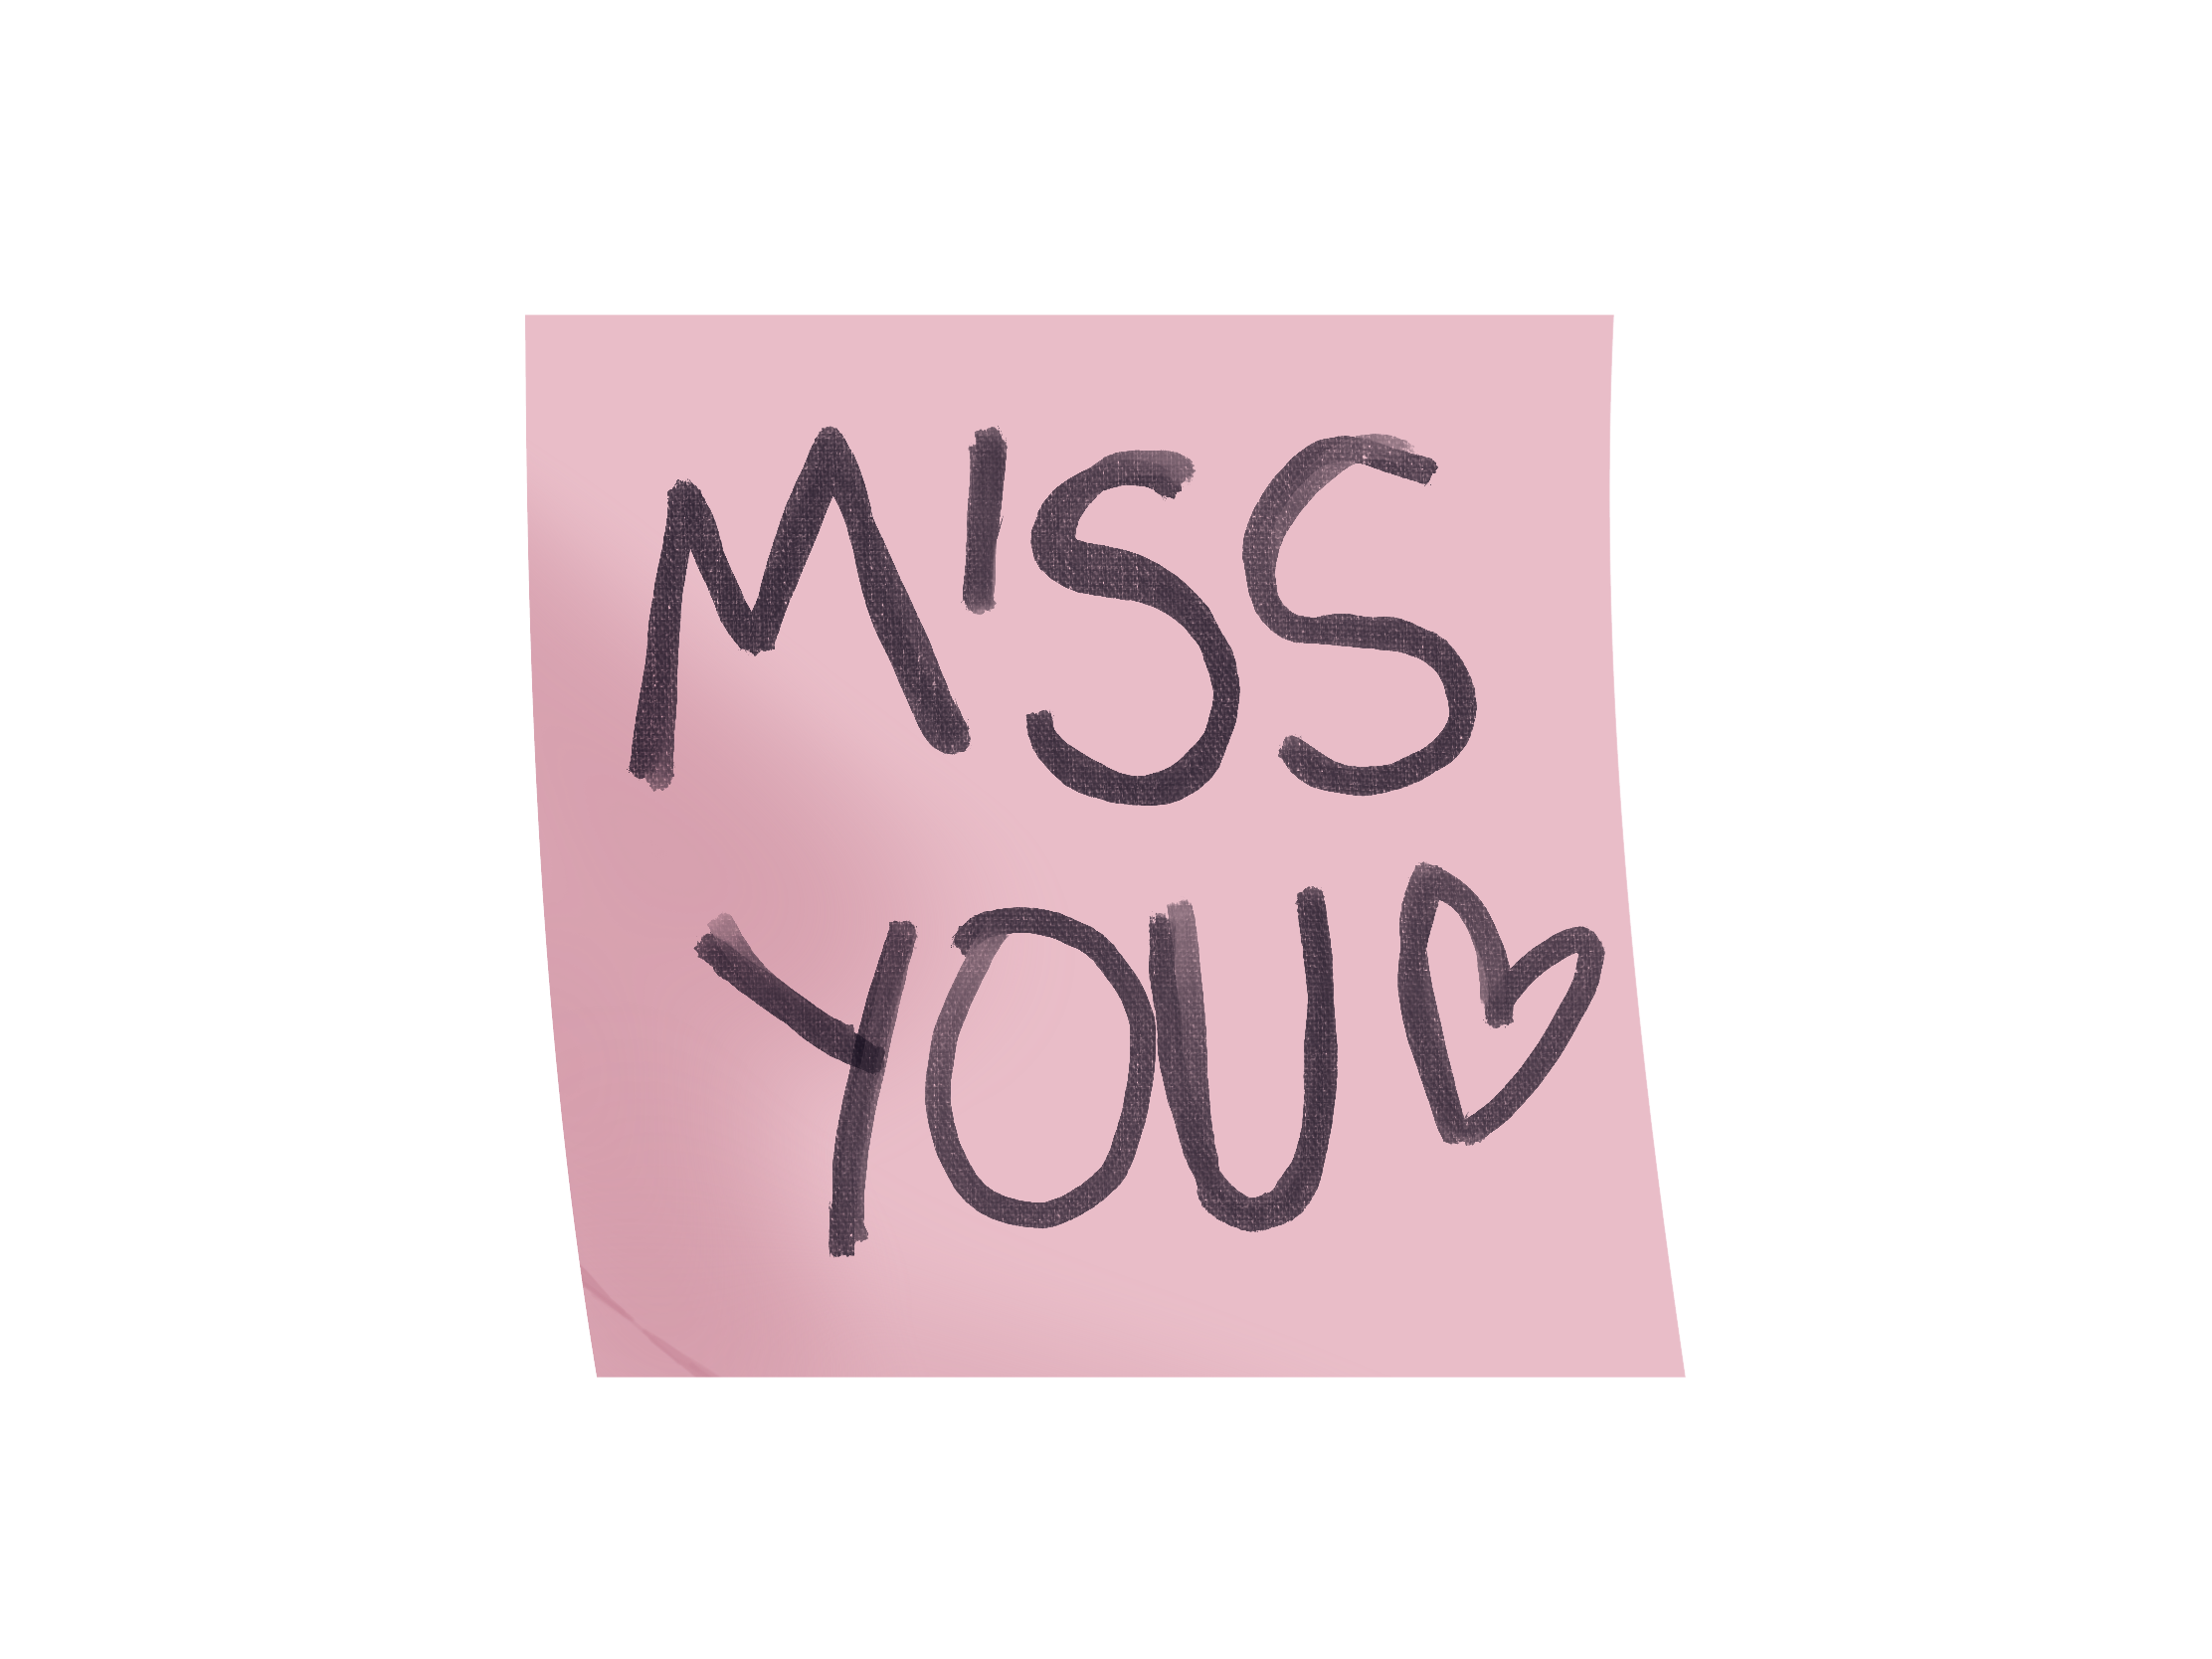 MISS
YOU♡